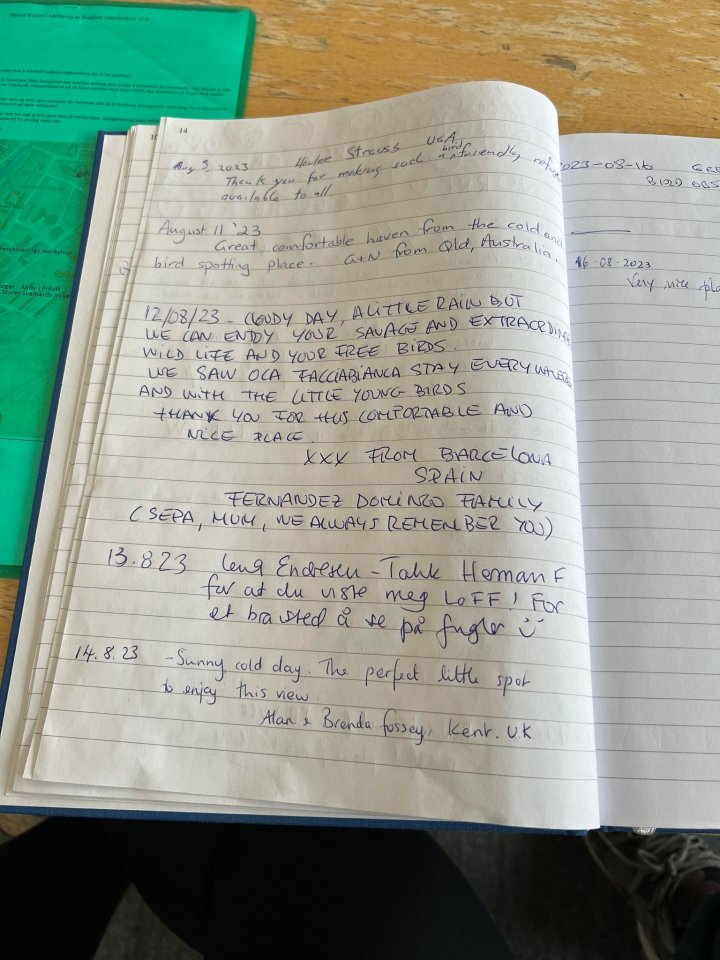 14
Aug 3, 2023 Strauss USA
Thank you for making such a bird friendly refuge
available to all
August 11 '23
Great, comfortable haven from the cold and
bird spotting place. G+N from Qld, Australia.
12/08/23 - CLOUDY DAY, A LITTLE RAIN BUT
WE CAN ENJOY YOUR SAVAGE AND EXTRAORDINE
WILD LIFE AND YOUR FREE BIRDS.
WE SAW OCA FACCIABIANCA STAY EVERYWHERE
AND WITH THE LITTLE YOUNG BIRDS
THANK YOU FOR THIS COMFORTABLE AND
NICE PLACE
XXX FROM BARCELONA
SPAIN
FERNANDEZ DOMINGO FAMILY
(SEPA, MUM, WE ALWAYS REMEMBER YOU)
13.8 23 Endresen - Takk Herman F
for at du viste meg LoFF! For
et bra sted å se på fugler
14.8.23 - Sunny, cold day. The perfect little spot
to enjoy this view.
Alan & Brenda Fossey, Kent. U.K
2023-08-16
BIRD OBS
16-08-2023
Very nice pla